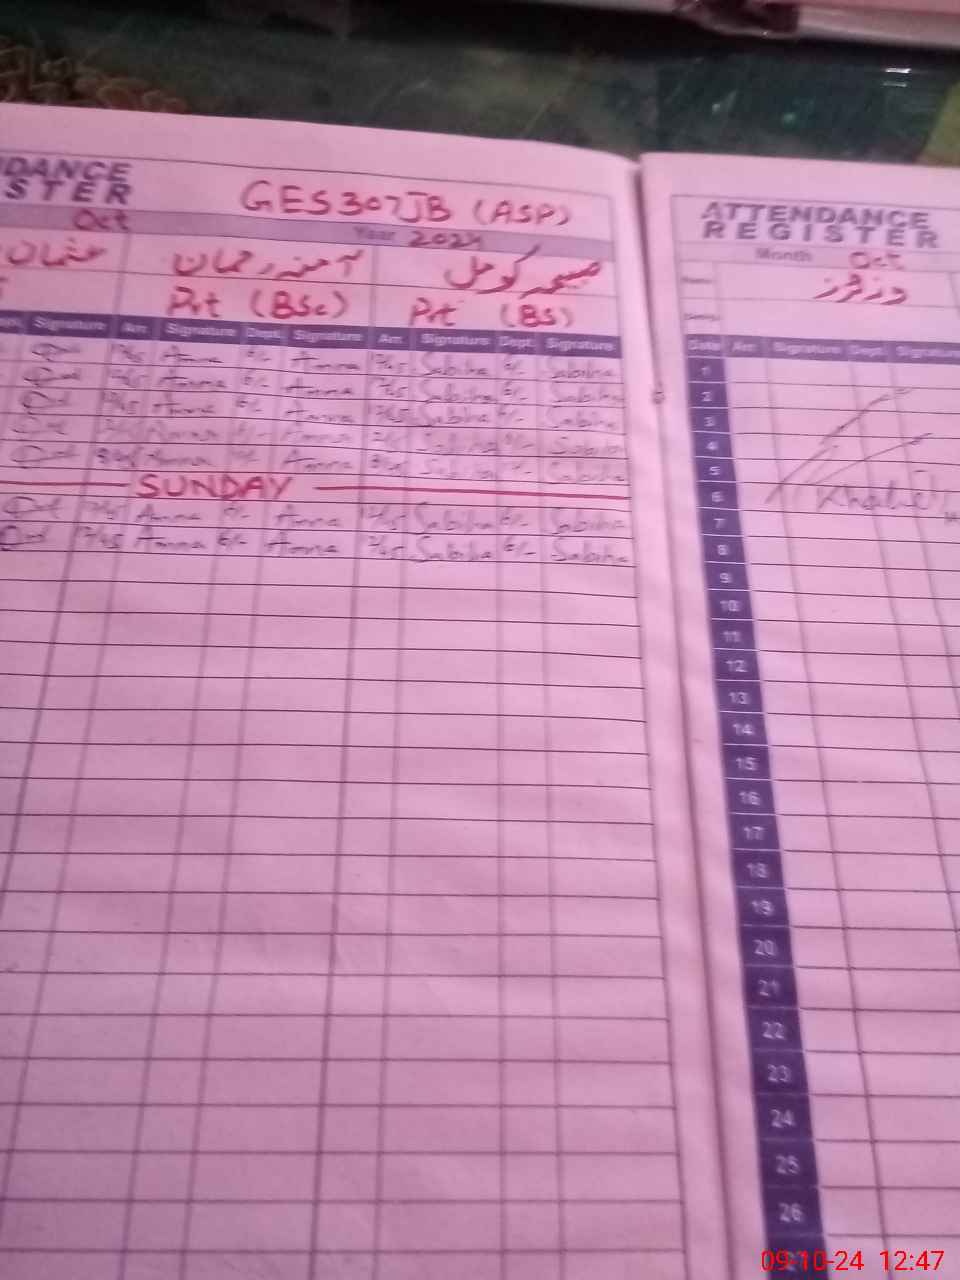 DANCE
ISTER
GES307JB (ASP)
Oct
Year 2024
عثمان
آمنہ رحمان
صبیحہ کومل
Prt (BSc)
Prt (BS)
Signature Arr. Signature Dept. Signature Arr. Signature Dept. Signature
Amna 6/- Amna 12/45 Sabiha 6/- Sabiha
Amna 6/- Amna 12/45 Sabiha 6/- Sabiha
Amna 6/- Amna 12/45 Sabiha 6/- Sabiha
Amna Amna Sabiha Sabiha
Amna Amna Sabiha Sabiha
SUNDAY
Amna 6/- Amna 12/45 Sabiha 6/- Sabiha
12/45 Amna 6/- Amna 12/45 Sabiha 6/- Sabiha
ATTENDANCE
REGISTER
Month Oct
Name
وزٹرز
Date Arr. Signature Dept. Signature
1
2
3
4
5
6 Khalid
7
8
9
10
11
12
13
14
15
16
17
18
19
20
21
22
23
24
25
26
09-10-24 12:47